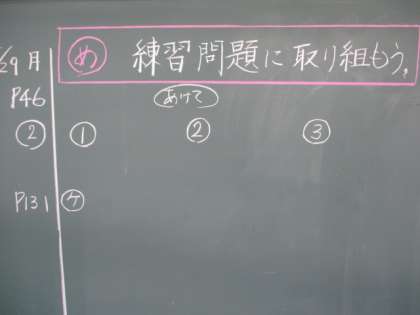 /29 月 め 練習問題に取り組もう。
P46 あけて
② ① ② ③
P131 ケ